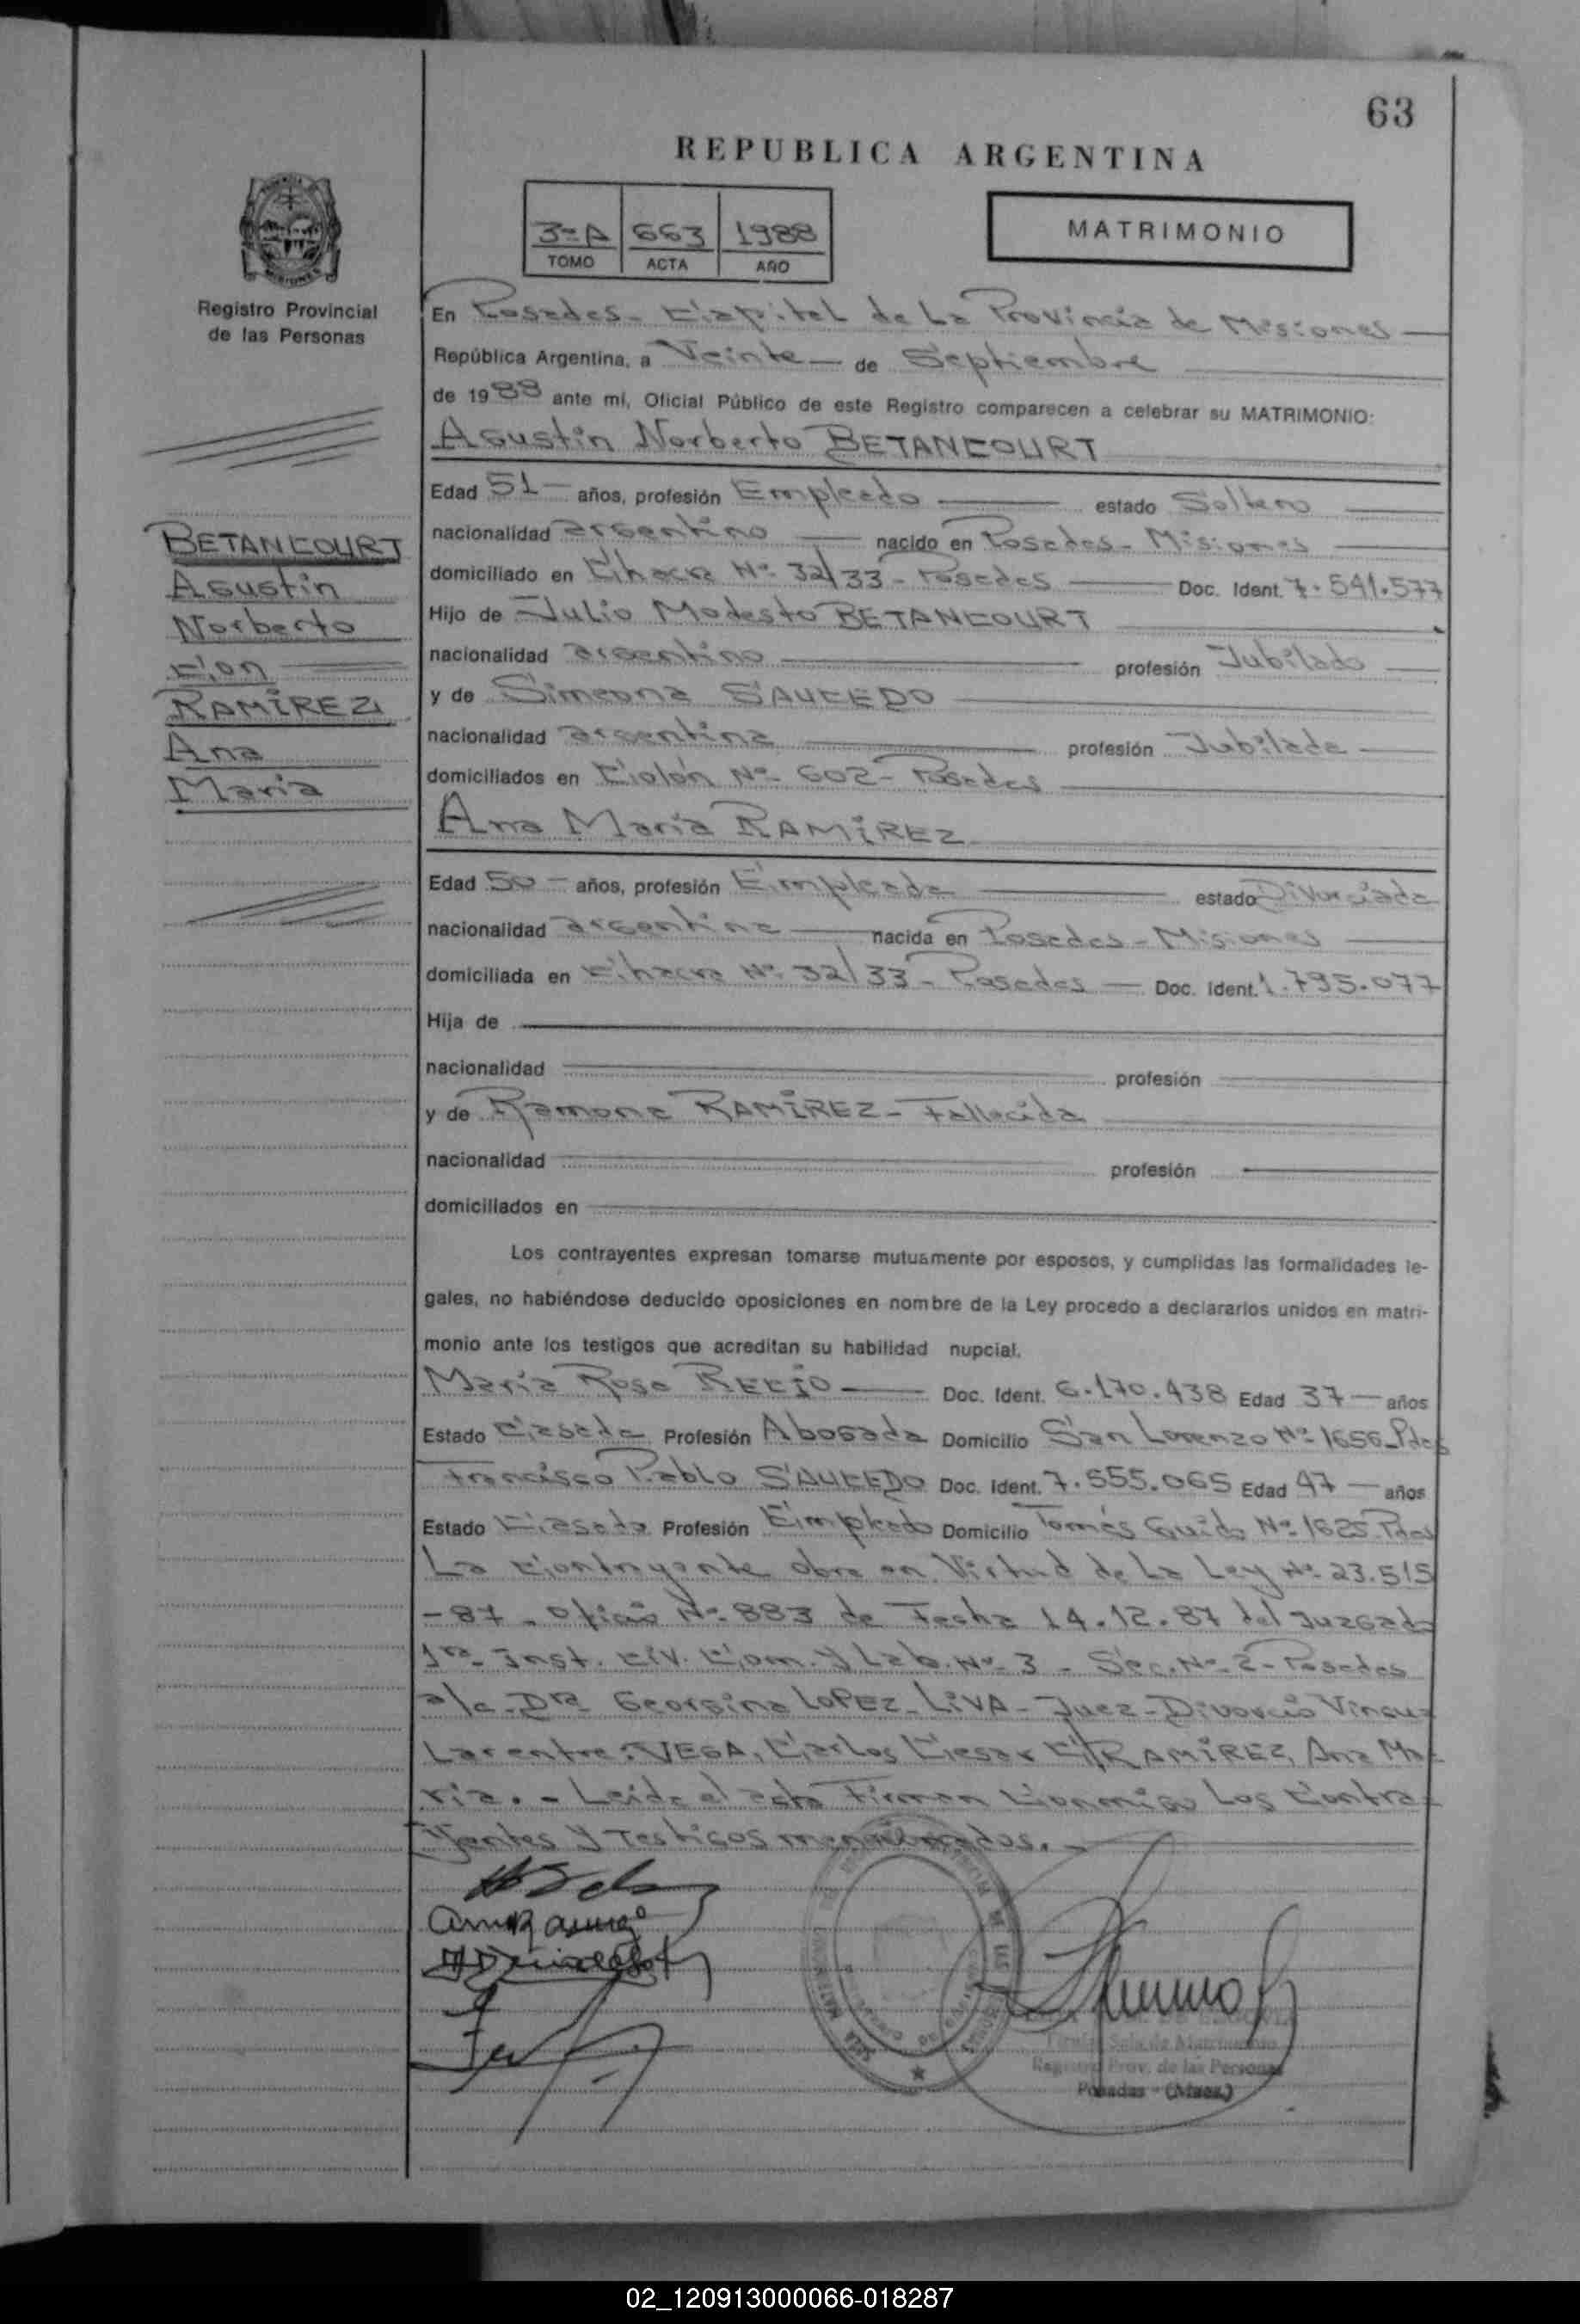 63
REPUBLICA ARGENTINA
3ºA 663 1988
TOMO ACTA AÑO
MATRIMONIO
Registro Provincial
de las Personas
En Posadas - Capital de La Provincia de Misiones
República Argentina, a Veinte de Septiembre
de 1988 ante mí, Oficial Público de este Registro comparecen a celebrar su MATRIMONIO:
Agustín Norberto BETANCOURT
Edad 51 años, profesión Empleado estado Soltero
nacionalidad argentino nacido en Posadas - Misiones
domiciliado en Chacra Nº 32/33 - Posadas Doc. Ident. 7.541.577
Hijo de Julio Modesto BETANCOURT
nacionalidad argentino profesión Jubilado
y de Simeona SAUCEDO
nacionalidad argentina profesión Jubilada
domiciliados en Colón Nº 602 - Posadas
BETANCOURT
Agustín
Norberto
con
RAMÍREZ
Ana
María
Ana María RAMÍREZ
Edad 50 años, profesión Empleada estado Divorciada
nacionalidad argentina nacida en Posadas - Misiones
domiciliada en Chacra Nº 32/33 - Posadas Doc. Ident. 1.795.077
Hija de
nacionalidad profesión
y de Ramona RAMÍREZ - Fallecida
nacionalidad profesión
domiciliados en
Los contrayentes expresan tomarse mutuamente por esposos, y cumplidas las formalidades le-
gales, no habiéndose deducido oposiciones en nombre de la Ley procedo a declararlos unidos en matri-
monio ante los testigos que acreditan su habilidad nupcial.
María Rosa RECIO Doc. Ident. 6.170.438 Edad 37 años
Estado Casada Profesión Abogada Domicilio San Lorenzo Nº 1656 Pdas
Francisco Pablo SAUCEDO Doc. Ident. 7.555.065 Edad 47 años
Estado Casado Profesión Empleado Domicilio Tomás Guido Nº 1625 Pdas
La Contrayente obra en Virtud de La Ley Nº 23.515
-87 - Oficio Nº 883 de Fecha 14.12.87 del Juzgado
1ra Inst. Civ. Com. y Lab. Nº 3 - Sec. Nº 2 - Posadas
a/c. Dra Georgina LOPEZ LIVA - Juez - Divorcio Vincu-
Lar entre: VEGA, Carlos Cesar C/ RAMÍREZ, Ana Ma-
ría. - Leída el acta Firman Conmigo Los Contra-
yentes y Testigos mencionados.
Sala de Matrimonio
Registro Prov. de las Personas
Posadas - (Mnes.)
02_120913000066-018287